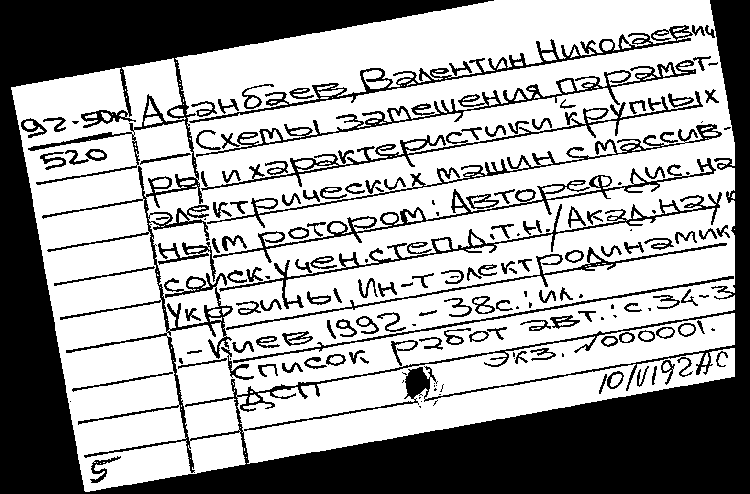 92-50к
520
Асанбаев, Валентин Николаевич
Схемы замещения, парамет-
ры и характеристики крупных
электрических машин с массив-
ным ротором: Автореф. дис. на
соиск. учен. степ. д.т.н./Акад. наук
Украины, Ин-т электродинамики
.-Киев, 1992.-38с.: ил.
список работ авт.: с.34-3
ДСП экз. №000001.
10/VI92АС
5